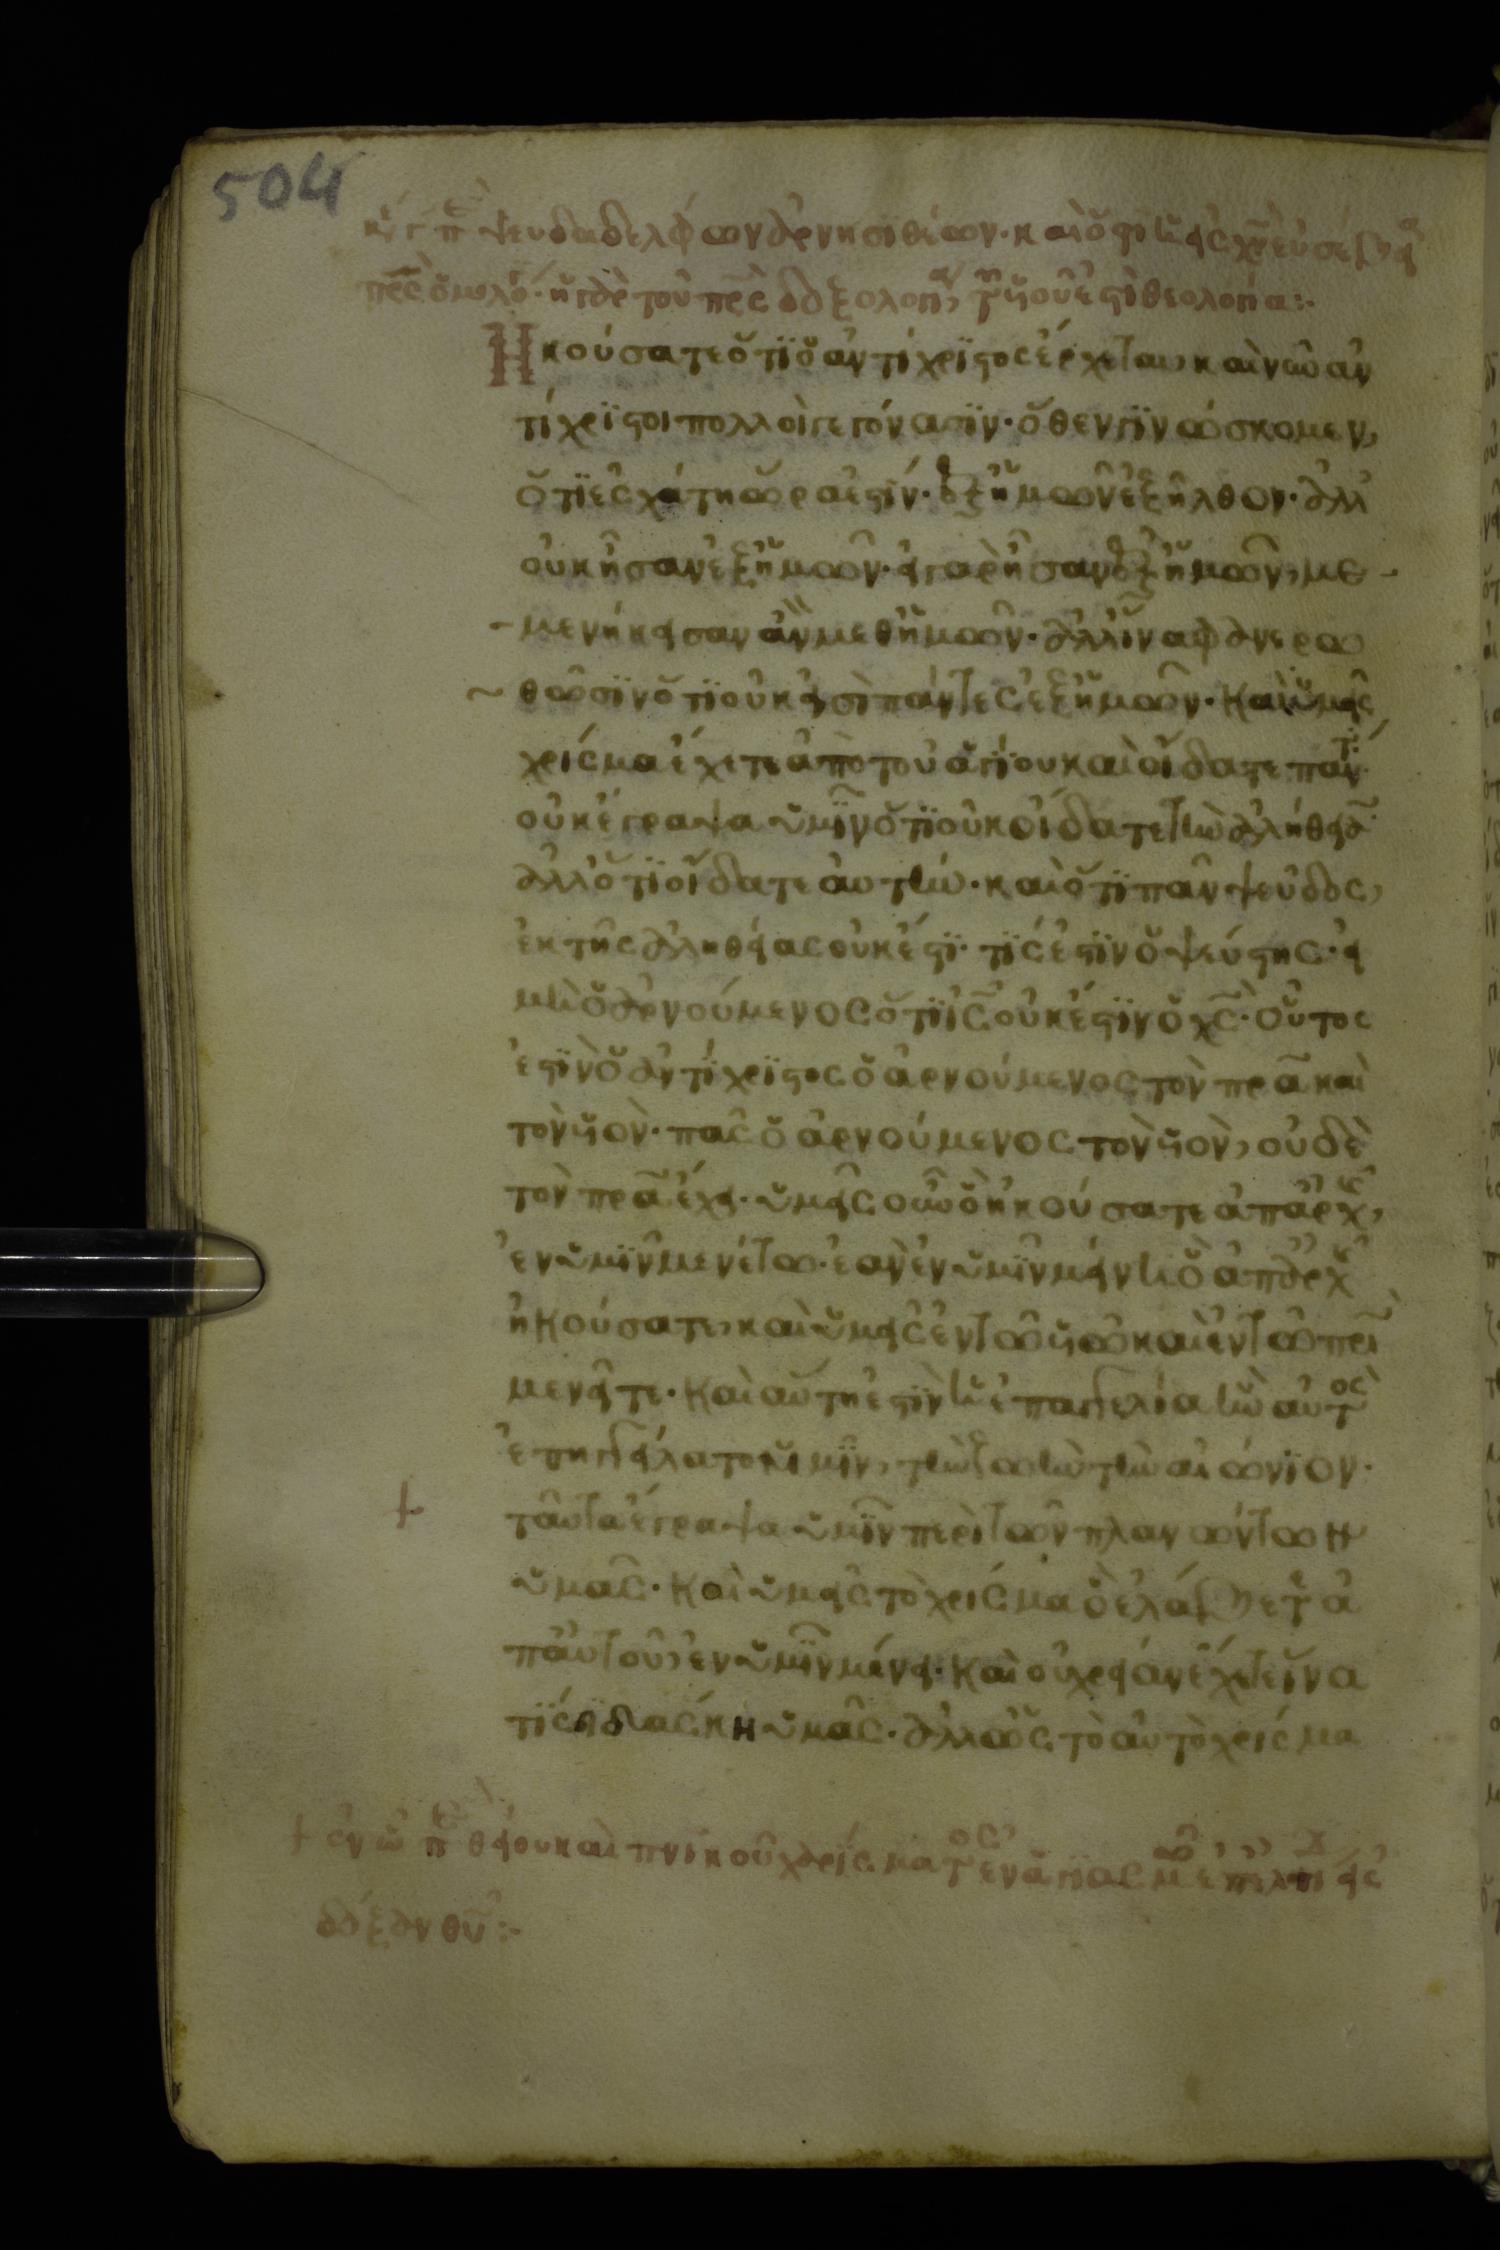 504
κε γ πε ψευδαδελφων αρνησιθέων. καὶ ὅτι ἡ εἰς χν εὐσέβει
πρς ὁμολο. ἡ γὰρ τοῦ πρς δοξολογι, τῆς υου ἐστὶ θεολογία:.
Ἠκούσατε ὅτι ὁ ἀντίχριστος ἔρχεται, καὶ νῦν ἀν
τίχριστοι πολλοὶ γεγόνασιν. ὅθεν γινώσκομεν,
ὅτι ἐσχάτη ὥρα ἐστίν. ἐξ ἡμῶν ἐξῆλθον. ἀλλ
οὐκ ἦσαν ἐξ ἡμῶν. εἰ γὰρ ἦσαν ἐξ ἡμῶν, με
μενήκεισαν ἂν μεθ ἡμῶν. ἀλλ ἵνα φανερω
θῶσιν ὅτι οὐκ εἰσὶ πάντες ἐξ ἡμῶν. Καὶ ὑμεῖς
χρίσμα ἔχετε ἀπὸ τοῦ ἁγίου καὶ οἴδατε παντ
οὐκ ἔγραψα ὑμῖν ὅτι οὐκ οἴδατε τὴν ἀλήθειαν
ἀλλ ὅτι οἴδατε αὐτήν. καὶ ὅτι πᾶν ψεῦδος,
ἐκ τῆς ἀληθείας οὐκ ἔστι. τίς ἐστιν ὁ ψεύστης. εἰ
μὴ ὁ ἀρνούμενος ὅτι ις οὐκ ἔστιν ὁ χς. Οὗτος
ἐστὶν ὁ ἀντίχριστος ὁ ἀρνούμενος τὸν πρα καὶ
τὸν υον. πᾶς ὁ ἀρνούμενος τὸν υον, οὐδὲ
τὸν πρα ἔχει. ὑμεῖς οὖν ὃ ἠκούσατε ἀπ ἀρχῆς,
ἐν ὑμῖν μενέτω. ἐὰν ἐν ὑμῖν μείνη ὃ ἀπ ἀρχῆς
ἠκούσατε, καὶ ὑμεῖς ἐν τῶ υω καὶ ἐν τῶ πρι
μενεῖτε. Καὶ αὕτη ἐστὶν ἡ ἐπαγγελία ἣν αὐτος
ἐπηγγείλατο ὑμῖν, τὴν ζωὴν τὴν αἰώνιον.
ταῦτα ἔγραψα ὑμῖν περὶ τῶν πλανώντων
ὑμᾶς. Καὶ ὑμεῖς τὸ χρίσμα ὃ ἐλάβετε ἀ
π αὐτοῦ, ἐν ὑμῖν μένει. Καὶ οὐ χρείαν ἔχετε ἵνα
τίς διδάσκη ὑμᾶς. ἀλλ ὡς τὸ αὐτὸ χρίσμα
ἐν ω πε θείου καὶ πνικοῦ χαρίσματος ἐν
θυ:.